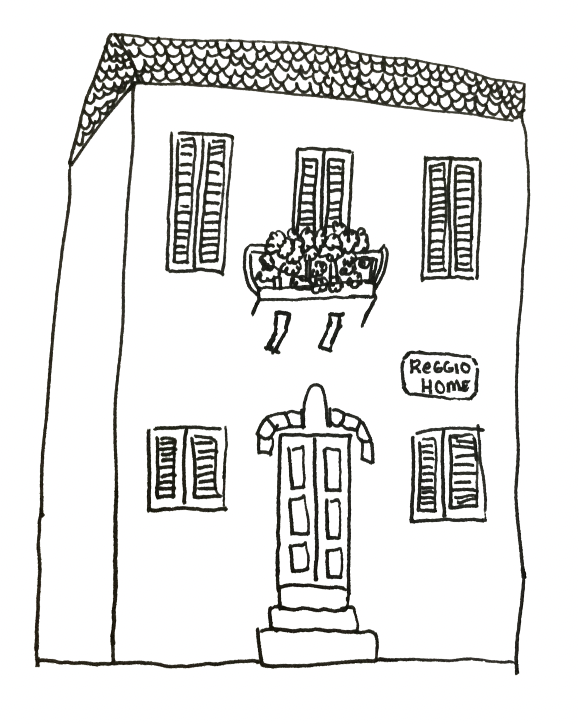 ReGGIO
HOME